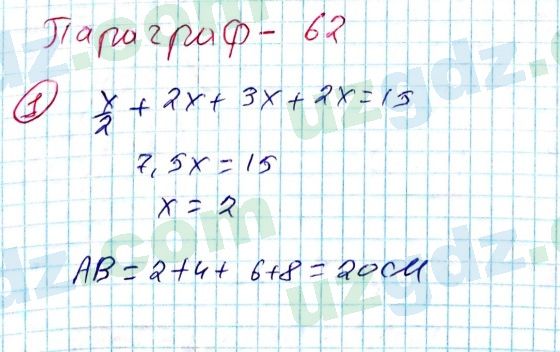 Параграф - 62
1 x/2 + 2x + 3x + 2x = 15
7,5x = 15
x = 2
AB = 2+4+ 6+8 = 20см
uzgdz.com